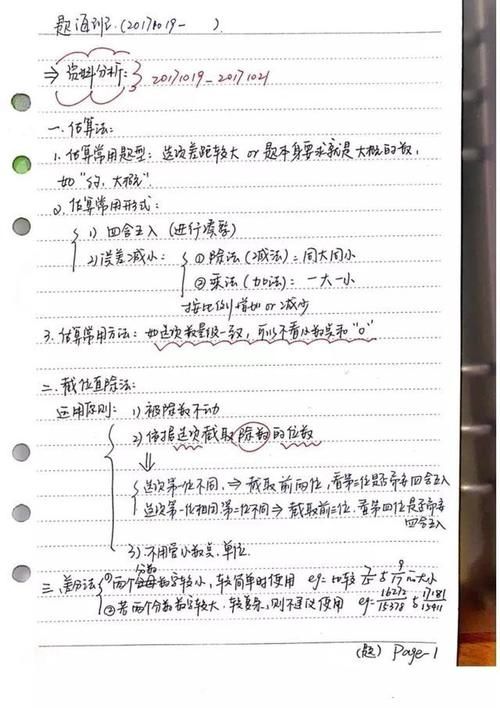 题海班: (20171019- ).
⇒ 资料分析: 20171019-20171021
一. 估算法:
1. 估算常用题型: 选项差距较大 or 题本身要求就是大概的数,
如"约, 大概".
2. 估算常用形式:
1) 四舍五入 (进行凑整)
2) 误差减小: ① 除法 (减法): 同大同小
② 乘法 (加法): 一大一小
按比例增加 or 减少
3. 估算常用方法: 如选项数量级一致, 可以不看小数点和"0"
二. 截位直除法:
运用原则: 1) 被除数不动
2) 依据选项截取除数的位数
选项第一位不同, ⇒ 截取前两位, 看第三位是否需四舍五入
选项第一位相同第二位不同 ⇒ 截取前三位. 看第四位是否需
四舍五入
3) 不用管小数点, 单位.
三. 差分法 ① 两个分数数字较小, 较简单时使用 eg= 比较 7/15 与 9/17 的大小
② 若两个分数数字较大, 较复杂, 则不建议使用 eg= 16272/15378 与 17181/15411
(题) Page-1